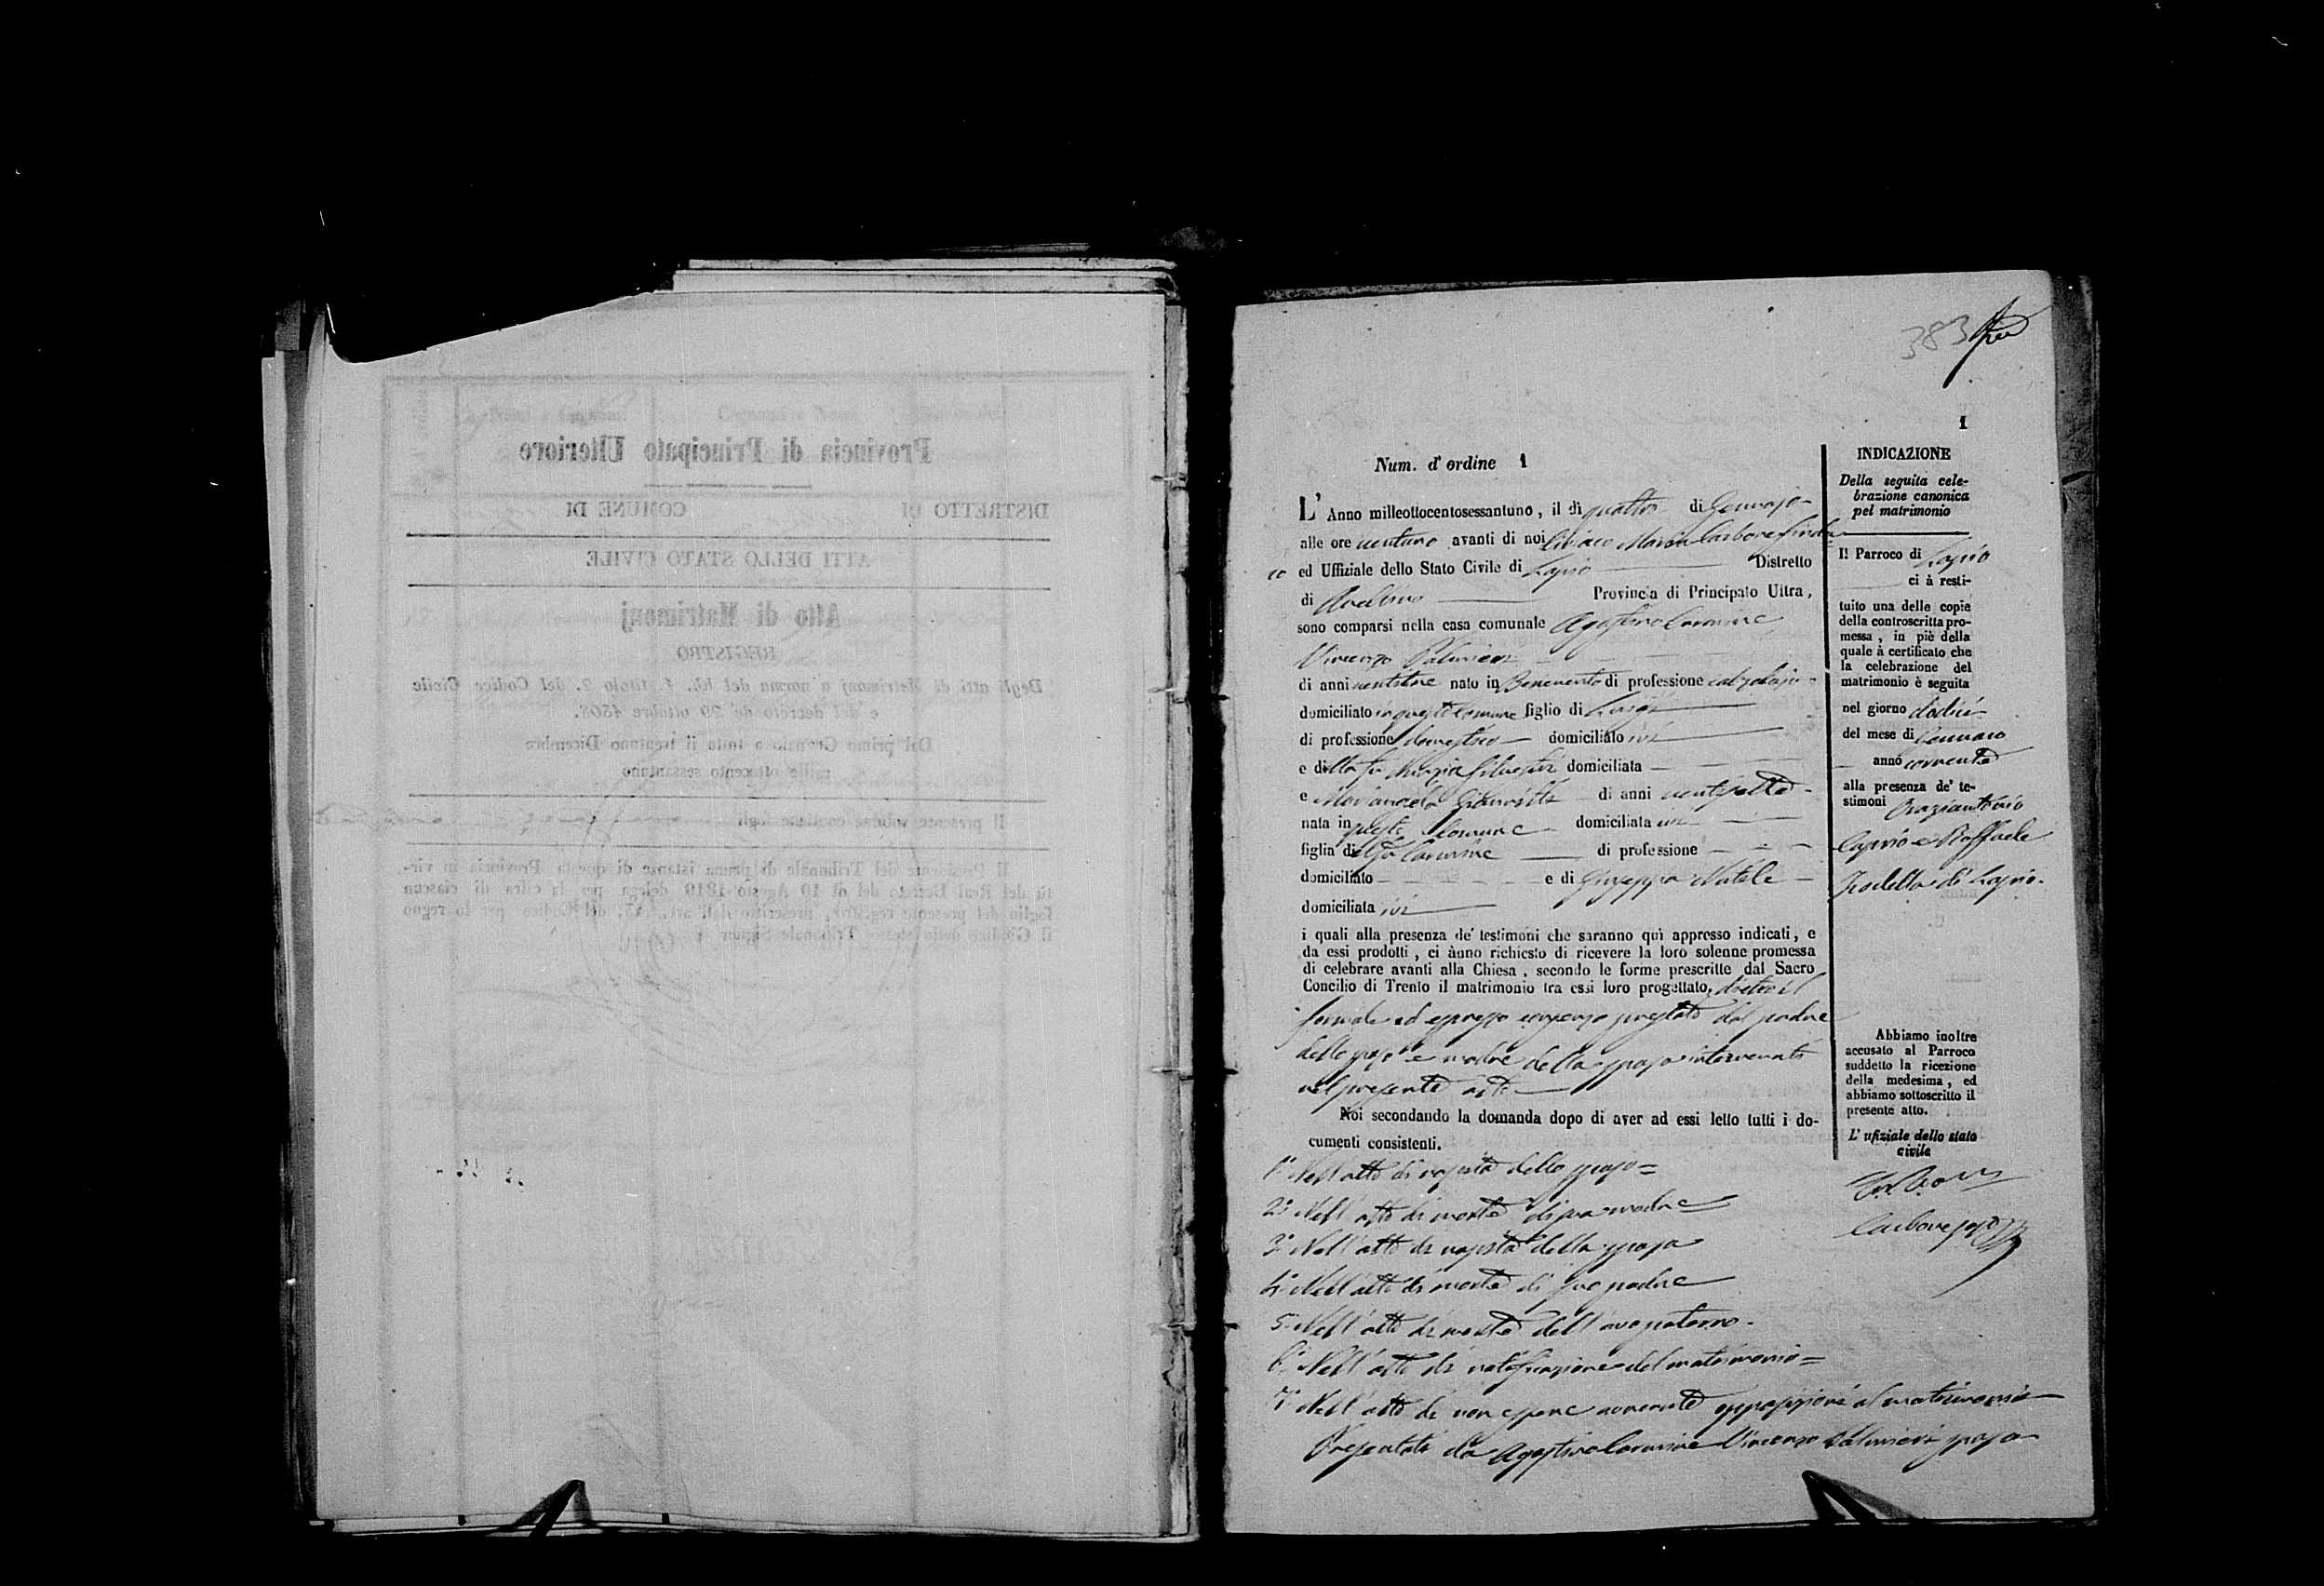 Provincia di Principato Ulteriore
DISTRETTO DI COMUNE DI
ATTI DELLO STATO CIVILE
Atto di Matrimonj
REGISTRO
Degli atti di Matrimonj a norma del lib. 1. titolo 2. del Codice Civile
e del decreto de' 29 ottobre 1808.
Dal primo Gennaio a tutto il trentuno Dicembre
mille ottocento sessantuno
Il presente volume contiene fogli
Il Presidente del Tribunale di prima istanza di questa Provincia in vir-
tù del Real Decreto del dì 10 Agosto 1819 delega per la cifra di ciascun
foglio del presente registro, prescritto dall'art. del Codice per lo regno
il Giudice dello stesso Tribunale Signor
383
1
Num. d' ordine 1
L' Anno milleottocentosessantuno, il dì quattro di Gennajo
alle ore ventuno avanti di noi Ciriaco Maria Carbone Sinda
co ed Uffiziale dello Stato Civile di Lapio Distretto
di Avellino Provincia di Principato Ultra,
sono comparsi nella casa comunale Agostino Carmine
Vincenzo Palmieri
di anni ventitre nato in Benevento di professione calzolajo
domiciliato in questo Comune figlio di Luigi
di professione domestico domiciliato ivi
e della fu domiciliata
e di anni ventisette
nata in questo Comune domiciliata ivi
figlia del fu Carmine di professione
domiciliato e di Giuseppa Natale
domiciliata ivi
i quali alla presenza de' testimoni che saranno quì appresso indicati, e
da essi prodotti, ci ànno richiesto di ricevere la loro solenne promessa
di celebrare avanti alla Chiesa, secondo le forme prescritte dal Sacro
Concilio di Trento il matrimonio tra essi loro progettato, dietro il
formale ed espresso consenso prestato dal padre
dello sposo e madre della sposa intervenuti
nel presente atto
Noi secondando la domanda dopo di aver ad essi letto tutti i do-
cumenti consistenti.
1° Nell'atto di nascita dello sposo =
2° Nell'atto di morte di sua madre
3° Nell'atto di nascita della sposa
4° Nell'atto di morte di suo padre
5° Nell'atto di morte dell'avo paterno.
6° Nell'atto di notificazione del matrimonio =
7° Nell'atto di non essere avvenute opposizioni al matrimonio
Presentati da Agostino Carmine Vincenzo Palmieri sposo
INDICAZIONE
Della seguita cele-
brazione canonica
pel matrimonio
Il Parroco di Lapio
ci à resti-
tuito una delle copie
della controscritta pro-
messa, in piè della
quale à certificato che
la celebrazione del
matrimonio è seguita
nel giorno dodici
del mese di Gennaro
anno corrente
alla presenza de' te-
stimoni Oraziantonio
Caprio e Raffaele
di Lapio.
Abbiamo inoltre
accusato al Parroco
suddetto la ricezione
della medesima, ed
abbiamo sottoscritto il
presente atto.
L' ufiziale dello stato
civile
Carbone